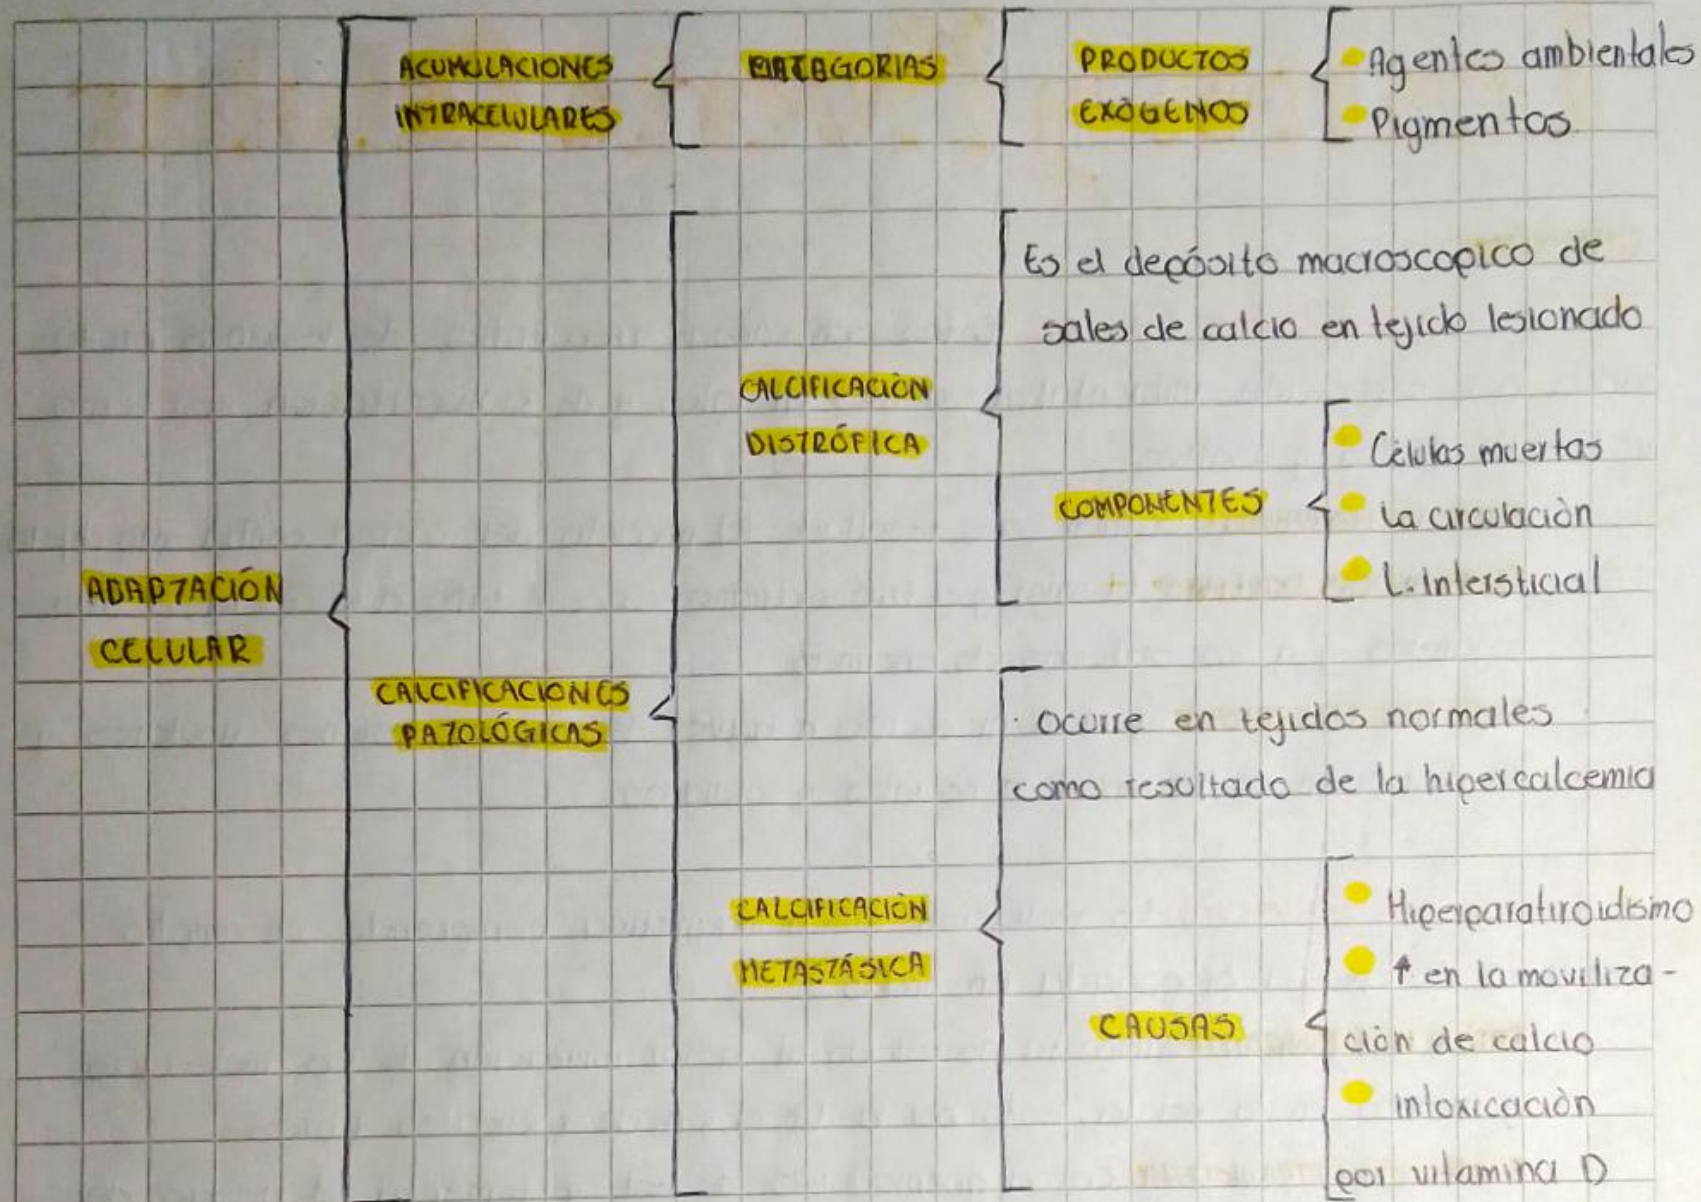 ADAPTACIÓN
CELULAR
ACUMULACIONES
INTRACELULARES
PRODUCTOS
EXÓGENOS
Agentes ambientales
Pigmentos
CALCIFICACIONES
PATOLÓGICAS
CALCIFICACIÓN
DISTRÓFICA
Es el depósito macroscopico de
sales de calcio en tejido lesionado
COMPONENTES
Células muertas
La circulación
L. Intersticial
CALCIFICACIÓN
METASTÁSICA
· Ocurre en tejidos normales
como resultado de la hipercalcemia
CAUSAS
Hiperparatiroidismo
↑ en la moviliza-
ción de calcio
intoxicación
por vitamina D